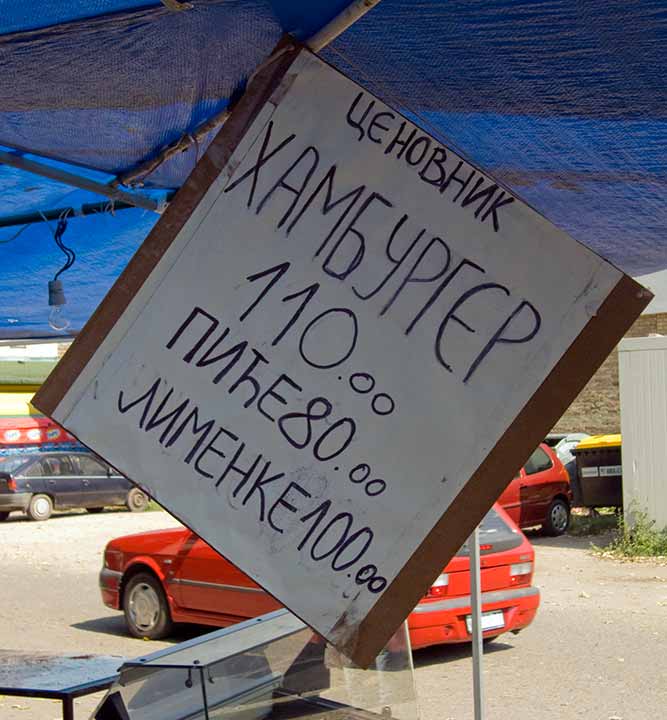 ЦЕНОВНИК
ХАМБУРГЕР
110.00
ПИЋЕ 80.00
ЛИМЕНКЕ 100.00